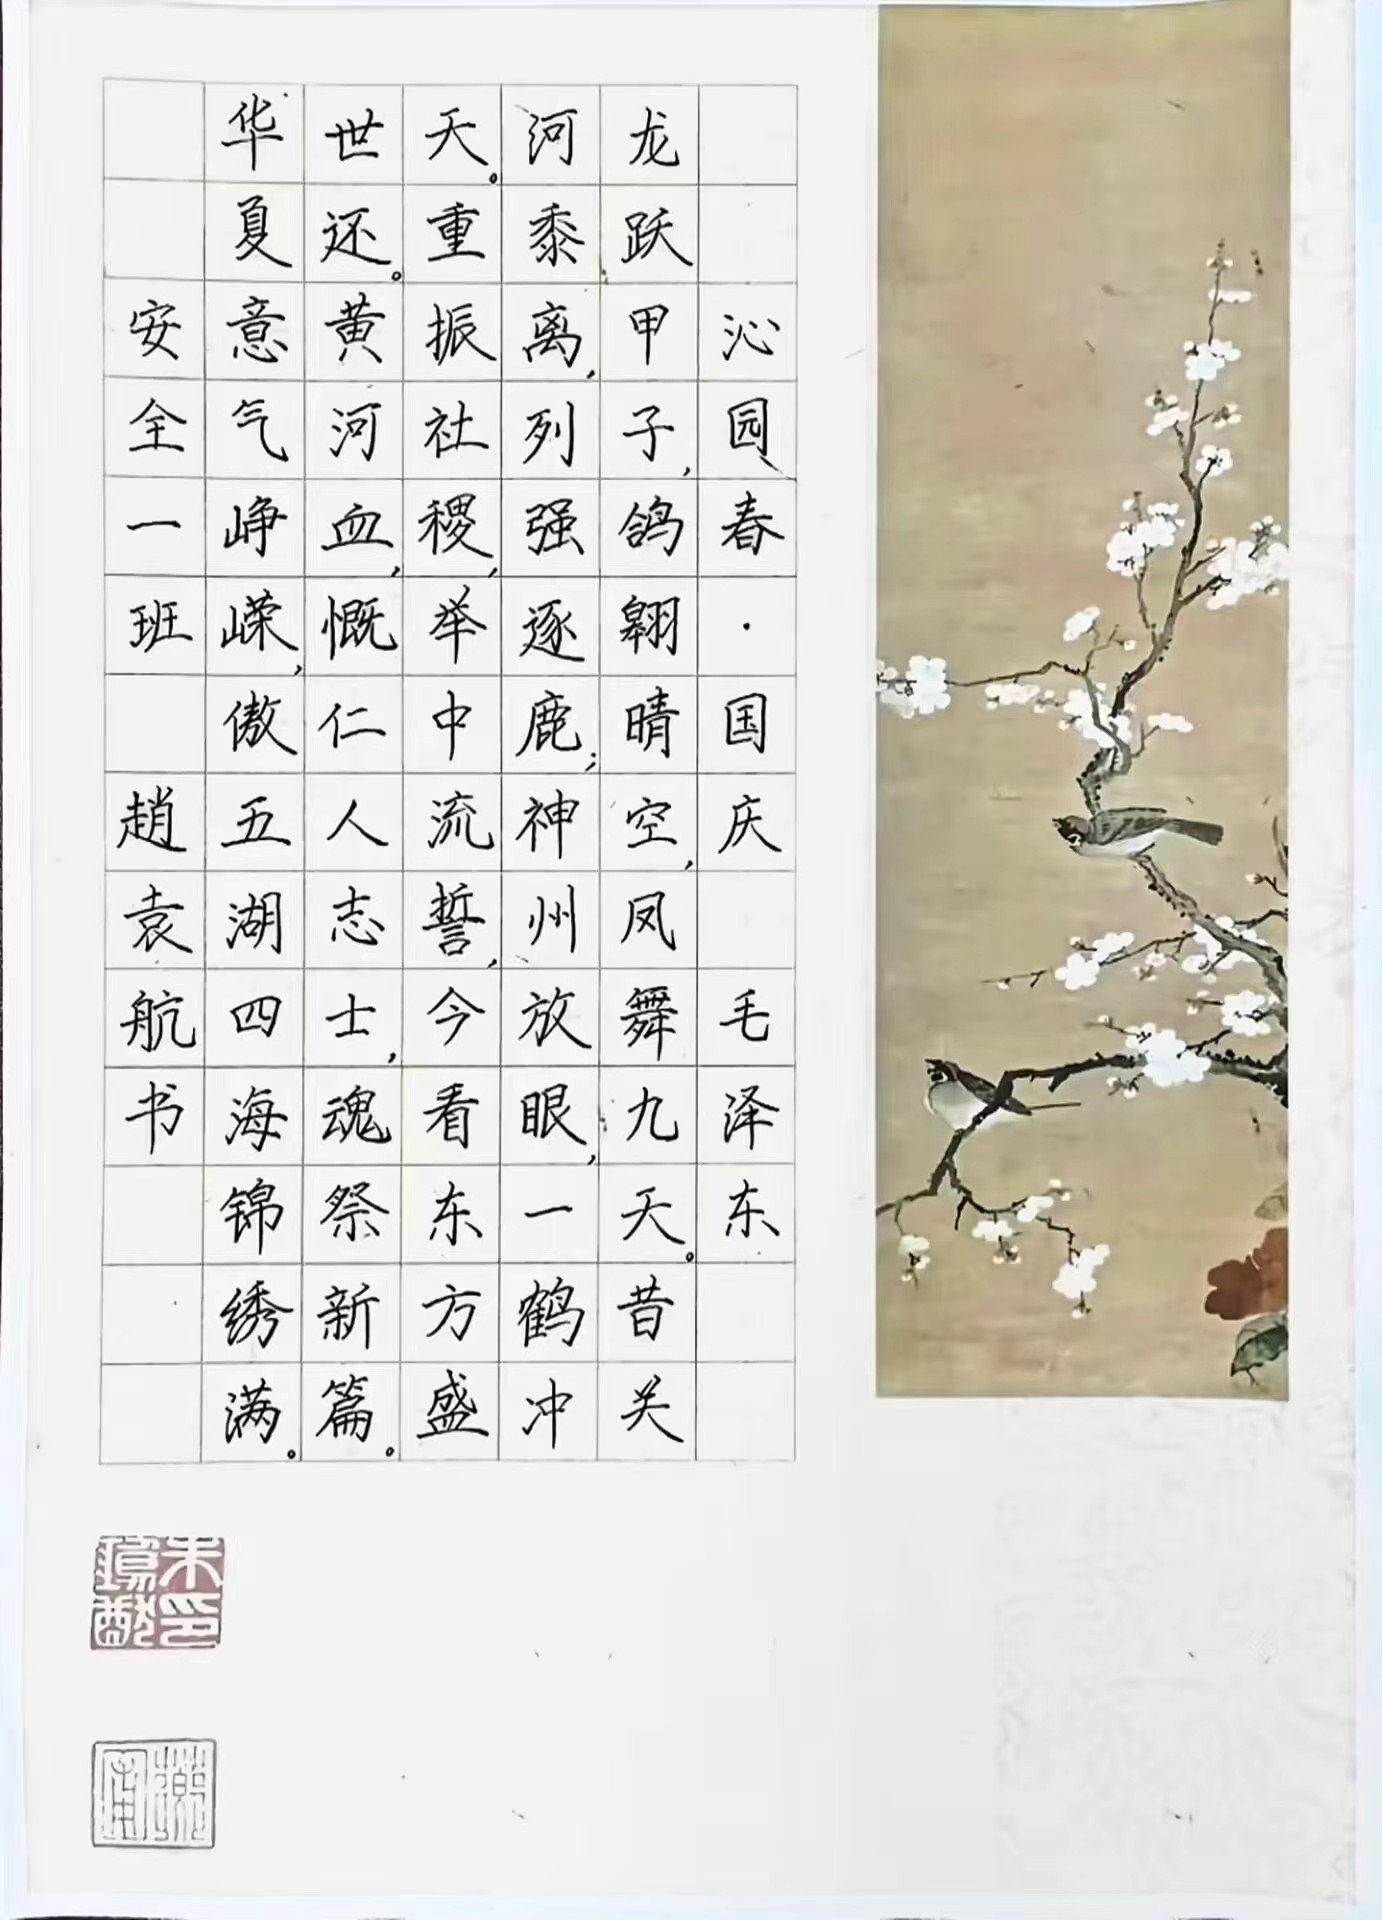 沁园春·国庆 毛泽东
龙跃甲子,鸽翱晴空,凤舞九天。昔关
河黍离,列强逐鹿;神州放眼,一鹤冲
天。重振社稷,举中流誓,今看东方盛
世还。黄河血,慨仁人志士,魂祭新篇。
华夏意气峥嵘,傲五湖四海锦绣满。
安全一班 赵袁航书